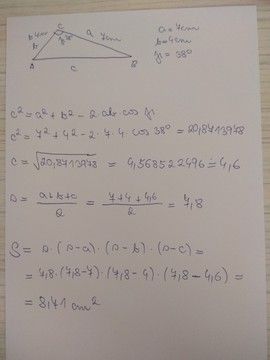 C
b 4cm a 7cm
b γ 38°
A c B
a = 7cm
b = 4cm
γ = 38°
c² = a² + b² - 2·ab·cos γ
c² = 7² + 4² - 2·7·4·cos 38° = 20,8713978
c = √20,8713978 = 4,568522496 ≐ 4,6
s = a+b+c / 2 = 7+4+4,6 / 2 = 7,8
S = s·(s-a)·(s-b)·(s-c) =
= 7,8·(7,8-7)·(7,8-4)·(7,8-4,6) =
= 8,71 cm²